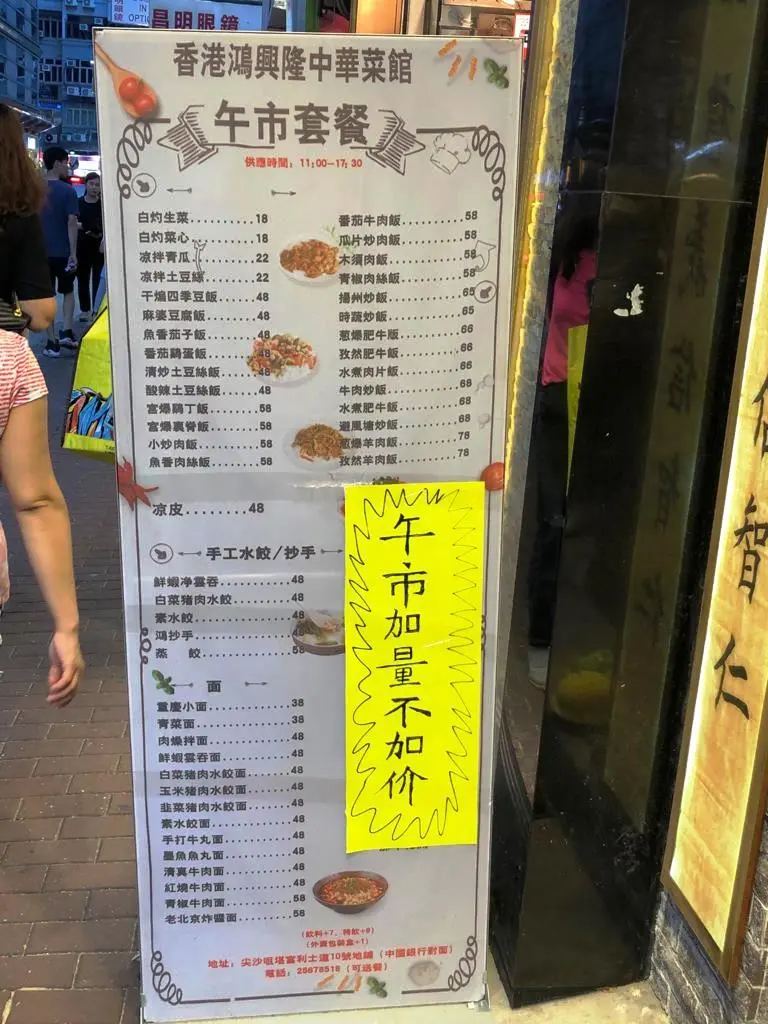 昌明眼鏡
香港鴻興隆中華菜館
午市套餐
供應時間：11:00-17:30
白灼生菜.........18
白灼菜心.........18
凉拌青瓜.........22
凉拌土豆絲.......22
干煸四季豆飯.....48
麻婆豆腐飯.......48
魚香茄子飯.......48
番茄鷄蛋飯.......48
清炒土豆絲飯.....48
酸辣土豆絲飯.....48
宫爆鷄丁飯.......58
宫爆裏脊飯.......58
小炒肉飯.........58
魚香肉絲飯.......58
番茄牛肉飯.......58
瓜片炒肉飯.......58
木須肉飯.........58
青椒肉絲飯.......58
揚州炒飯.........65
時蔬炒飯.........65
葱爆肥牛版.......66
孜然肥牛飯.......66
水煮肉片飯.......66
牛肉炒飯.........68
水煮肥牛飯.......68
避風塘炒飯.......68
葱爆羊肉飯.......78
孜然羊肉飯.......78
凉皮........48
手工水餃/抄手
鮮蝦净雲吞.........48
白菜猪肉水餃.......48
素水餃.............48
鴻抄手.............48
蒸 餃.............58
面
重慶小面...........38
青菜面.............38
肉燥拌面...........48
鮮蝦雲吞面.........48
白菜猪肉水餃面.....48
玉米猪肉水餃面.....48
韭菜猪肉水餃面.....48
素水餃面...........48
手打牛丸面.........48
墨魚魚丸面.........48
清真牛肉面.........48
紅燒牛肉面.........48
青椒牛肉面.........58
老北京炸醬面.......58
午市加量不加价
（飲料+7、特飲+9）
（外賣包裝盒+1）
地址：尖沙咀堪富利士道10號地鋪（中國銀行對面）
電話：25678518（可送餐）
智
仁